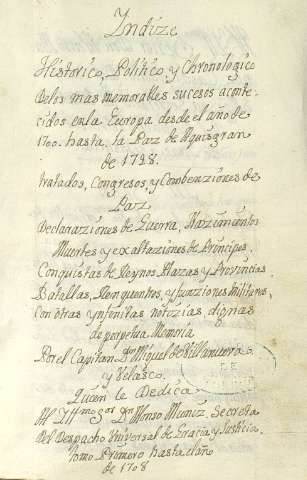 Indize
Historico, Politico, y Chronologico
delos mas memorables sucesos aconte-
cidos enla Europa desde el año de
1700. hasta la Paz de Aquisgran
de 1748.
tratados, Congresos, y Combenziones de
Paz,
Declaraziones de Guerra, Nazimientos
Muertes y exaltaziones de Principes,
Conquistas de Reynos Plazas y Provincias
Batallas, Renquentros, y funziones Militares,
Con otras ynfinitas notizias dignas
de perpetua Memoria
Por el Capitan Dn Miguel de Villanueva
y Velasco.
Quien le Dedica
Al Illmo Sor Dn Alonso Muñiz, Secreta
del Despacho Universal de Gracia y Justicia.
tomo Primero hasta el año
de 1708